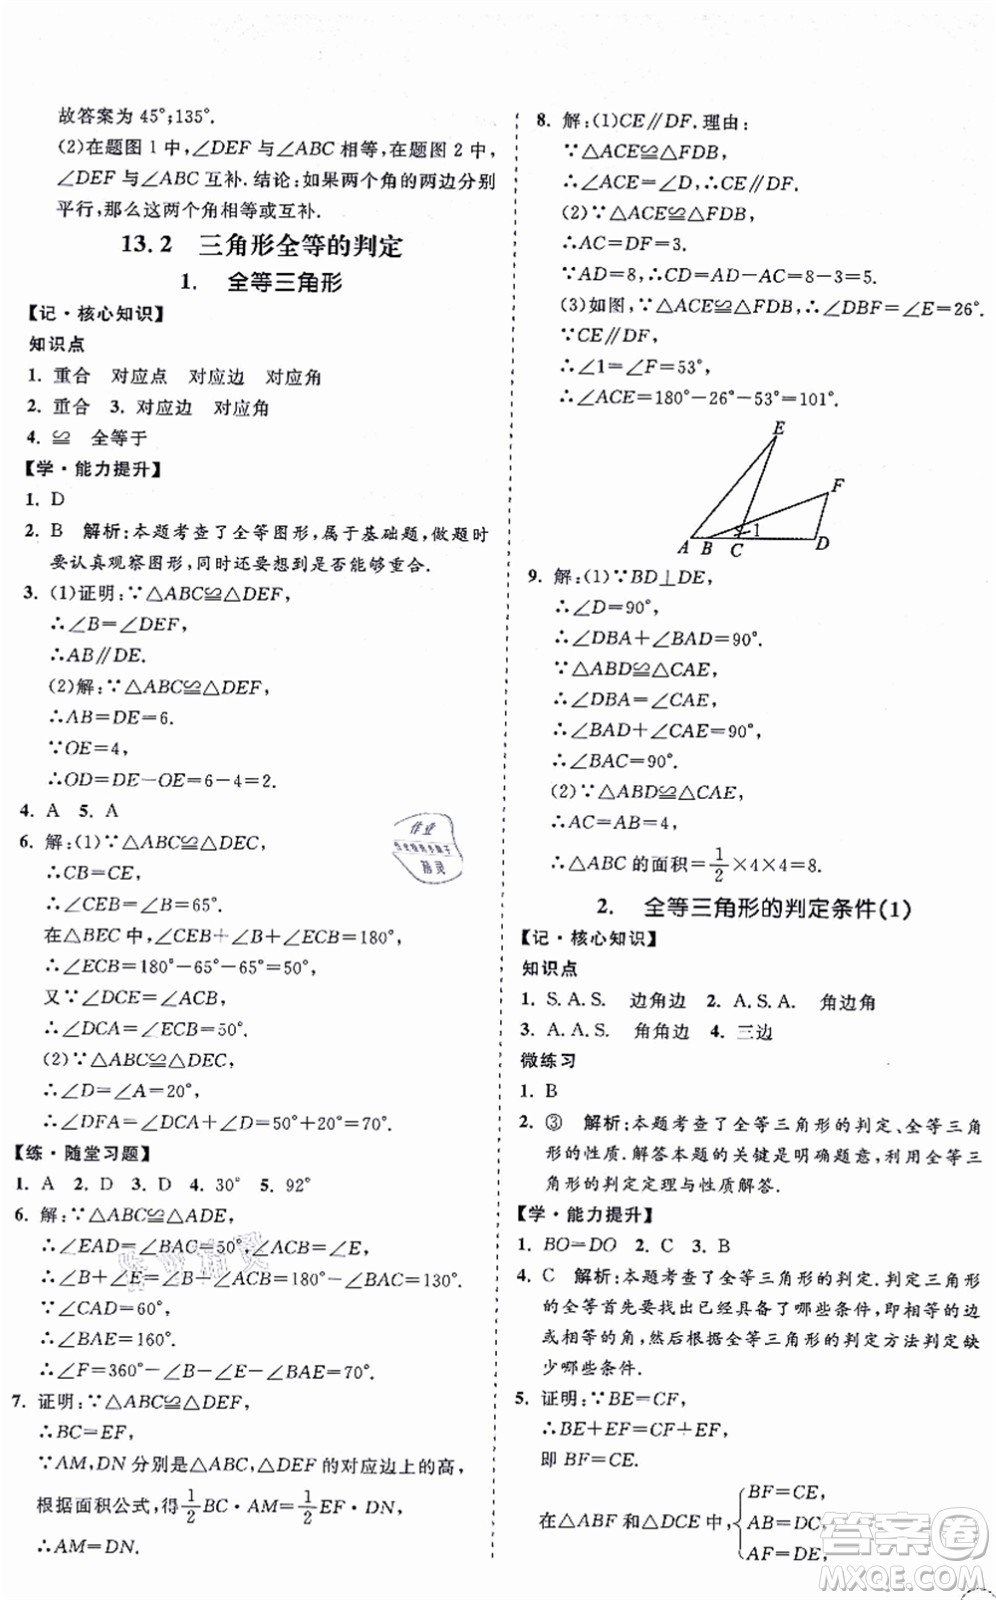 故答案为 45°;135°.
(2)在题图 1 中,∠DEF 与∠ABC 相等,在题图 2 中,
∠DEF 与∠ABC 互补. 结论:如果两个角的两边分别
平行,那么这两个角相等或互补.
13.2 三角形全等的判定
1. 全等三角形
【记·核心知识】
知识点
1. 重合 对应点 对应边 对应角
2. 重合 3. 对应边 对应角
4. ≌ 全等于
【学·能力提升】
1. D
2. B 解析:本题考查了全等图形,属于基础题,做题时
要认真观察图形,同时还要想到是否能够重合.
3. (1)证明:∵△ABC≌△DEF,
∴∠B=∠DEF,
∴AB∥DE.
(2)解:∵△ABC≌△DEF,
∴AB=DE=6.
∵OE=4,
∴OD=DE-OE=6-4=2.
4. A 5. A
6. 解:(1)∵△ABC≌△DEC,
∴CB=CE,
∴∠CEB=∠B=65°.
在△BEC 中,∠CEB+∠B+∠ECB=180°,
∴∠ECB=180°-65°-65°=50°,
又∵∠DCE=∠ACB,
∴∠DCA=∠ECB=50°.
(2)∵△ABC≌△DEC,
∴∠D=∠A=20°,
∴∠DFA=∠DCA+∠D=50°+20°=70°.
【练·随堂习题】
1. A 2. D 3. D 4. 30° 5. 92°
6. 解:∵△ABC≌△ADE,
∴∠EAD=∠BAC=50°,∠AED=∠C,
∴∠B+∠E=∠B+∠C=180°-∠BAC=180°-50°=130°.
∵∠CAD=60°,
∴∠BAE=160°.
∴∠F=360°-∠B-∠E-∠BAE=70°.
7. 证明:∵△ABC≌△DEF,
∴BC=EF,
∵AM,DN 分别是△ABC,△DEF 的对应边上的高,
根据面积公式,得1/2BC·AM=1/2EF·DN,
∴AM=DN.
8. 解:(1)CE∥DF. 理由:
∵△ACE≌△FDB,
∴∠ACE=∠D,∴CE∥DF.
(2)∵△ACE≌△FDB,
∴AC=DF=3.
∵AD=8,∴CD=AD-AC=8-3=5.
(3)如图,∵△ACE≌△FDB,∴∠DBF=∠E=26°.
∵CE∥DF,
∴∠1=∠F=53°,
∴∠ACE=180°-26°-53°=101°.
E
F
1
A B C D
9. 解:(1)∵BD⊥DE,
∴∠D=90°,
∴∠DBA+∠BAD=90°.
∵△ABD≌△CAE,
∴∠DBA=∠CAE,
∴∠BAD+∠CAE=90°,
∴∠BAC=90°.
(2)∵△ABD≌△CAE,
∴AC=AB=4,
∴△ABC 的面积=1/2×4×4=8.
2. 全等三角形的判定条件(1)
【记·核心知识】
知识点
1. S.A.S. 边角边 2. A.S.A. 角边角
3. A.A.S. 角角边 4. 三边
微练习
1. B
2. ③ 解析:本题考查了全等三角形的判定、全等三角
形的性质. 解答本题的关键是明确题意,利用全等三
角形的判定定理与性质解答.
【学·能力提升】
1. BO=DO 2. C 3. B
4. C 解析:本题考查了全等三角形的判定. 判定三角形
的全等首先要找出已经具备了哪些条件,即相等的边
或相等的角,然后根据全等三角形的判定方法判定缺
少哪些条件.
5. 证明:∵BE=CF,
∴BE+EF=CF+EF,
即 BF=CE.
BF=CE,
在△ABF 和△DCE 中,{AB=DC,
AF=DE,
作业
精灵
答案圈
MXQE.COM